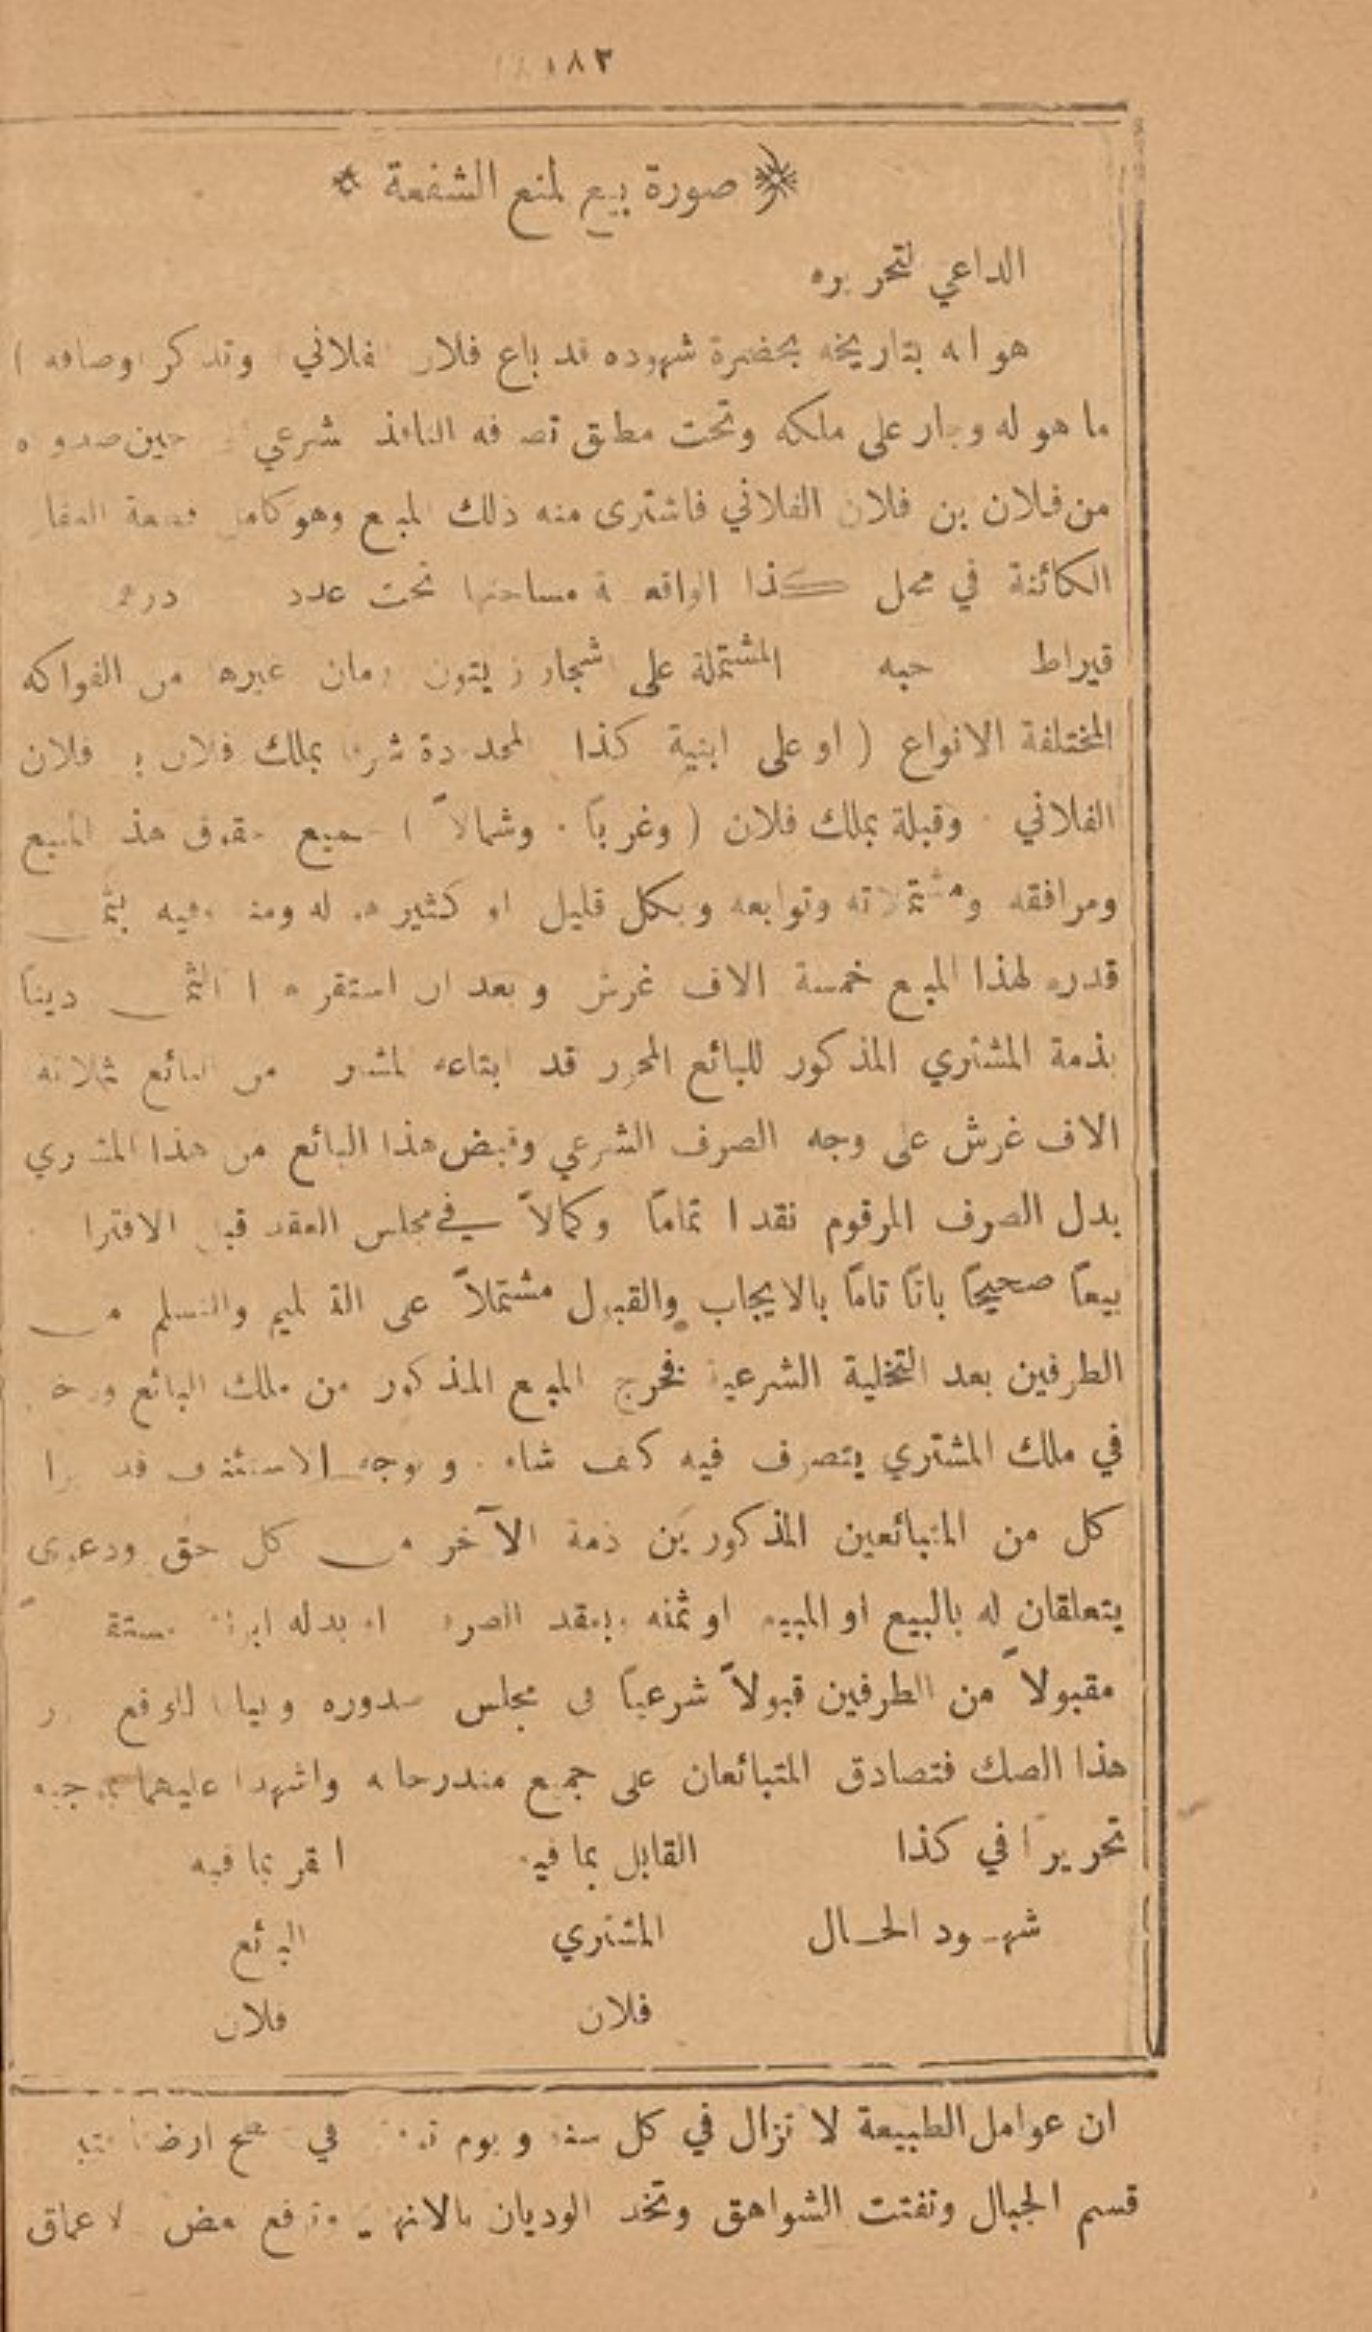 ١٨٣
صورة بيع لمنع الشفعة
الداعي لتحريره
هو انه بتاريخه بحضرة شهوده قد باع فلان الفلاني وتذكر اوصافه )
ما هو له وجار على ملكه وتحت مطلق تصرفه النافذ شرعي حين صدوره
من فلان بن فلان الفلاني فاشترى منه ذلك المبيع وهو كامل قطعة
الكائنة في محل كذا الواقعة مساحتها تحت عدد درهم
قيراط حبه المشتملة على اشجار زيتون رمان غيرها من الفواكه
المختلفة الانواع ( او على ابنية كذا المحدودة شرقا بملك فلان بن فلان
الفلاني وقبلة بملك فلان ( وغرباً . وشمالاً ) جميع حقوق هذا المبيع
ومرافقه ومشتملاته وتوابعه وبكل قليل او كثير هو له ومنه وفيه بثمن
قدره لهذا المبيع خمسة الاف غرش وبعد ان استقر هذا الثمن ديناً
بذمة المشتري المذكور للبائع المحرر قد ابتاعه المشتري من البائع ثلاثة
الاف غرش على وجه الصرف الشرعي وقبض هذا البائع من هذا المشتري
بدل الصرف المرقوم نقدا تماماً وكمالاً في مجلس العقد قبل الافتراق
بيعاً صحيحاً باتاً تاماً بالايجاب والقبول مشتملاً على التسليم والتسلم من
الطرفين بعد التخلية الشرعية فخرج المبيع المذكور من ملك البائع ودخل
في ملك المشتري يتصرف فيه كيف شاء . و بوجه الاستئناف قد ابرا
كل من المتبائعين المذكورين ذمة الآخر من كل حق ودعوى
يتعلقان له بالبيع او المبيع او ثمنه وبعقد الصرف او بدله ابراء
مقبولاً من الطرفين قبولاً شرعياً في مجلس صدوره وبياناً للواقع حرر
هذا الصك فتصادق المتبائعان على جميع مندرجاته واشهدا عليهما بموجبه
تحريراً في كذا القابل بما فيه المقر بما فيه
شهود الحال المشتري البائع
فلان فلان
ان عوامل الطبيعة لا تزال في كل سنة ويوم في ارضنا
قسم الجبال وتفتت الشواهق وتخد الوديان بالانهر وترفع بعض الاعماق